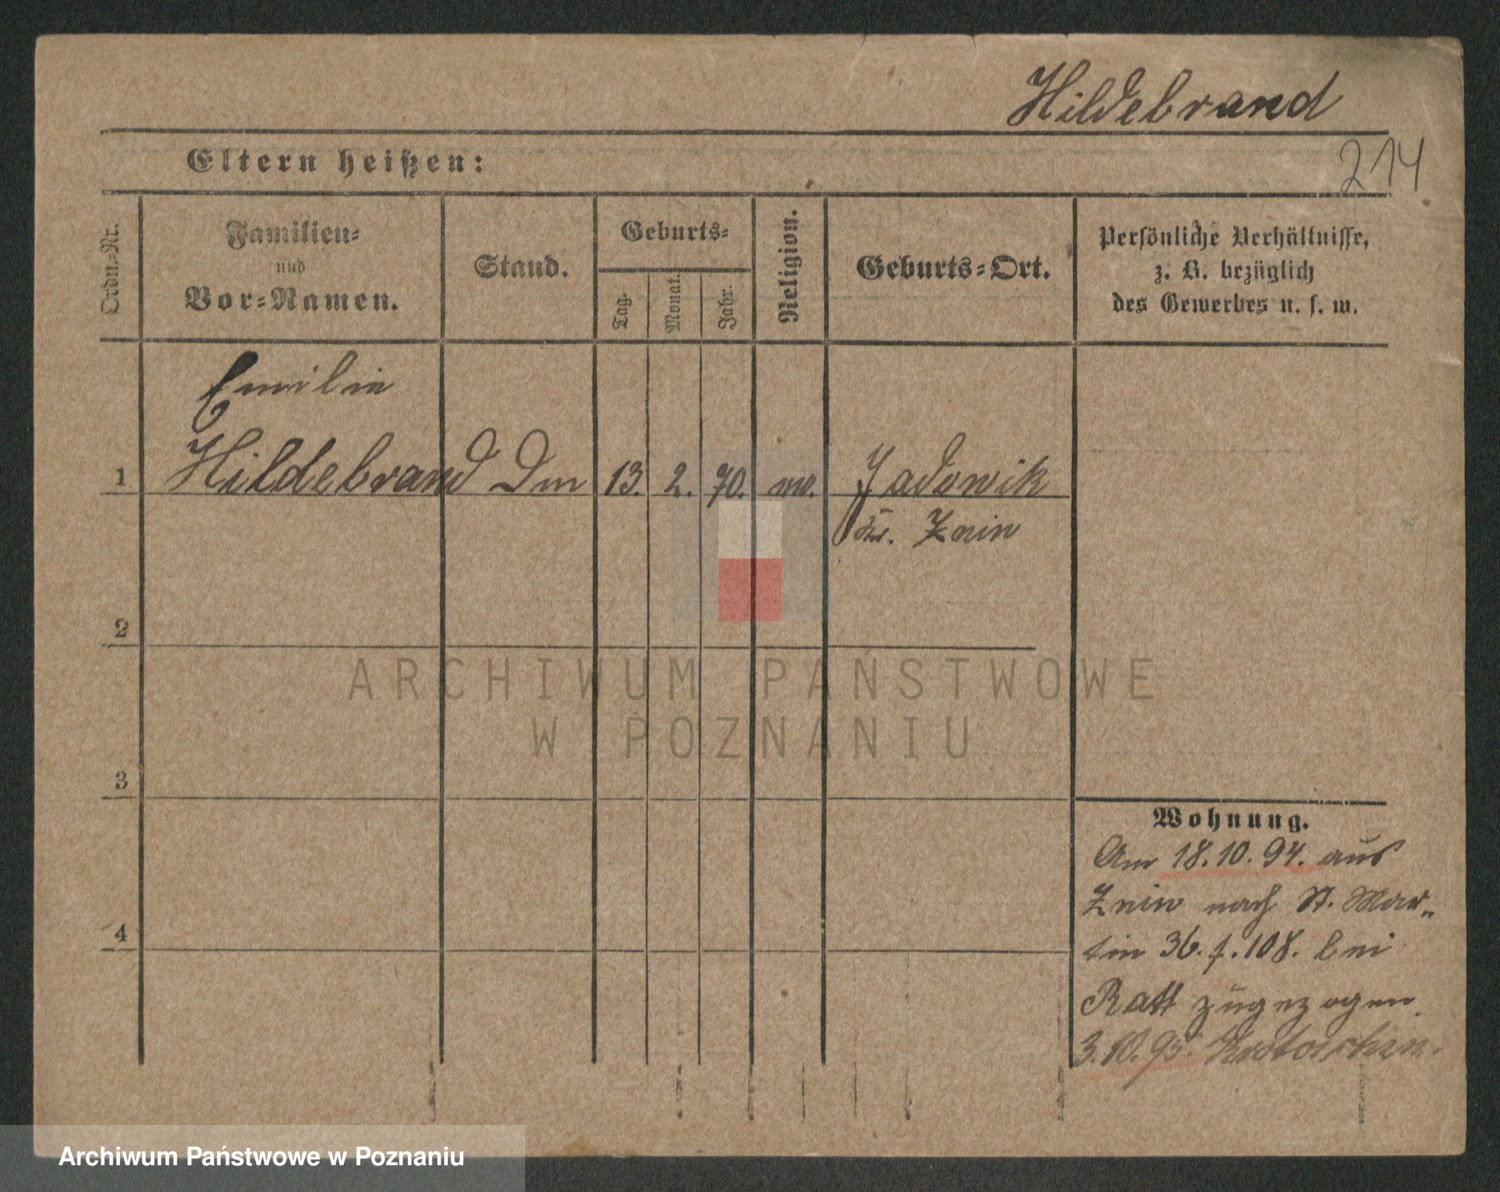 Hildebrand
214
Eltern heißen:
Ordn.-Nr.
Familien-
und
Vor-Namen.
Stand.
Geburts-
Tag.
Monat.
Jahr.
Religion.
Geburts-Ort.
Persönliche Verhältnisse,
z. B. bezüglich
des Gewerbes u. s. w.
Emilie
1 Hildebrand 13. 2. 70. Jadownik
Kr. Znin
2
3
4
ARCHIWUM PAŃSTWOWE
W POZNANIU
Wohnung.
Am 18.10.94. aus
Znin nach St. Mar-
tin 36. f. 108. bei
Ratt zugezogen.
3.10.95. Krotoschin.
Archiwum Państwowe w Poznaniu